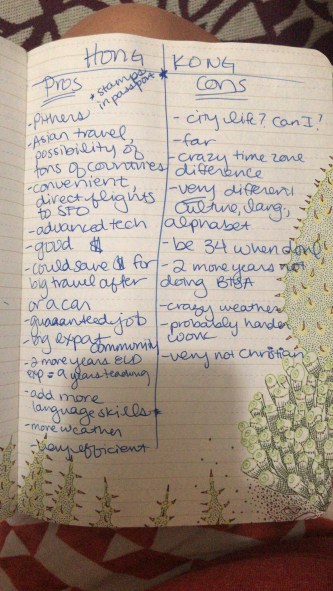 HONG KONG
Pros
* stamps
in passport *
- PYHers
- Asian travel,
possibility of
tons of countries
- convenient,
direct flights
to SFO
- advanced tech
- good $
- could save $ for
big travel after
or a car
- guaranteed job
- big expat community
- 2 more years ELD
exp = 9 years teaching
- add more
language skills
- more weather
- very efficient
Cons
- city life? Can I?
- far
- crazy time zone
difference
- very different
culture, lang,
alphabet
- be 34 when done
- 2 more years not
doing
- crazy weather
- probably harder
work
- very not Christian